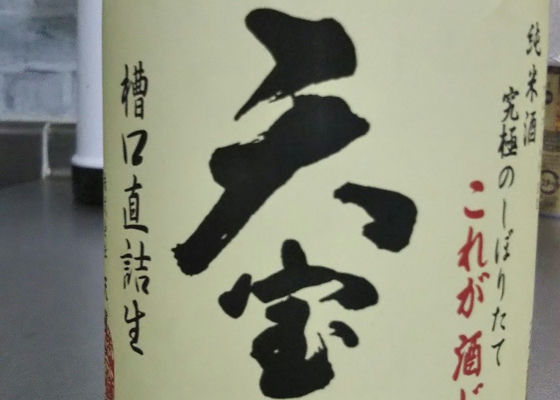 純米酒
究極のしぼりたて
これが酒だ
天宝
槽口直詰生